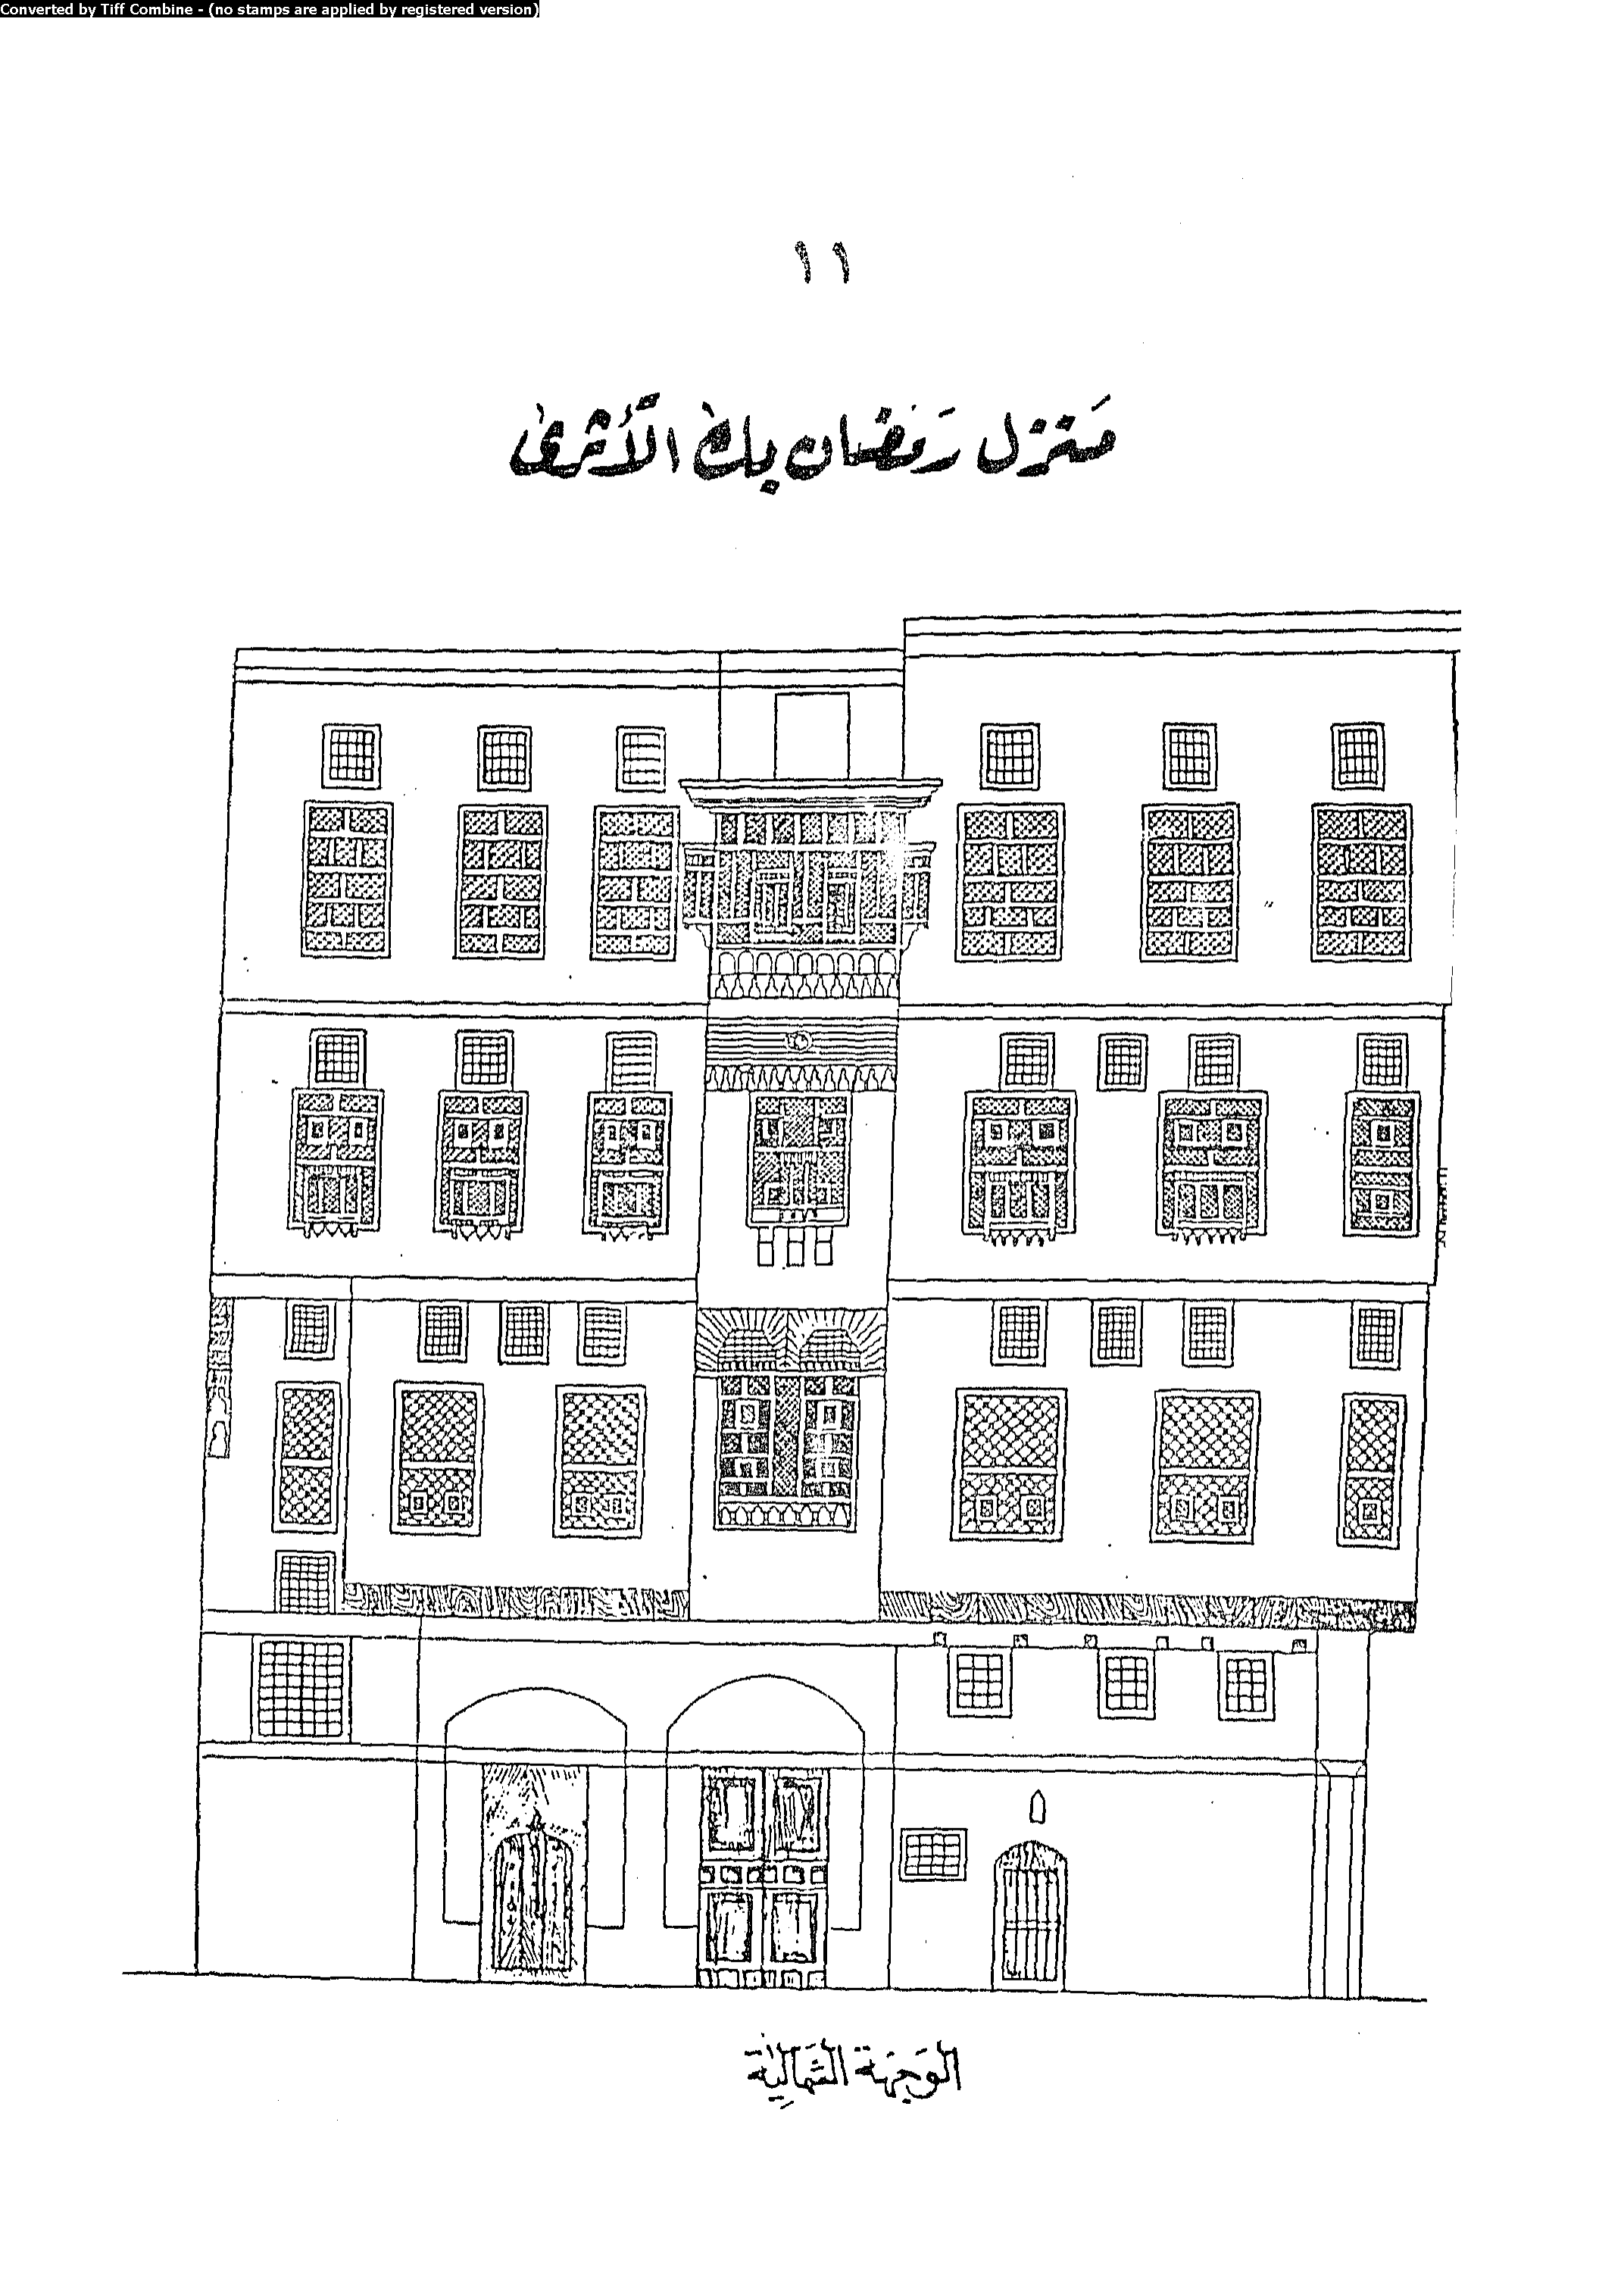 Converted by Tiff Combine - (no stamps are applied by registered version)
١١
مَنزل رَمَضان بك الأَثرى
الوَجهَة الشَمالِيَة